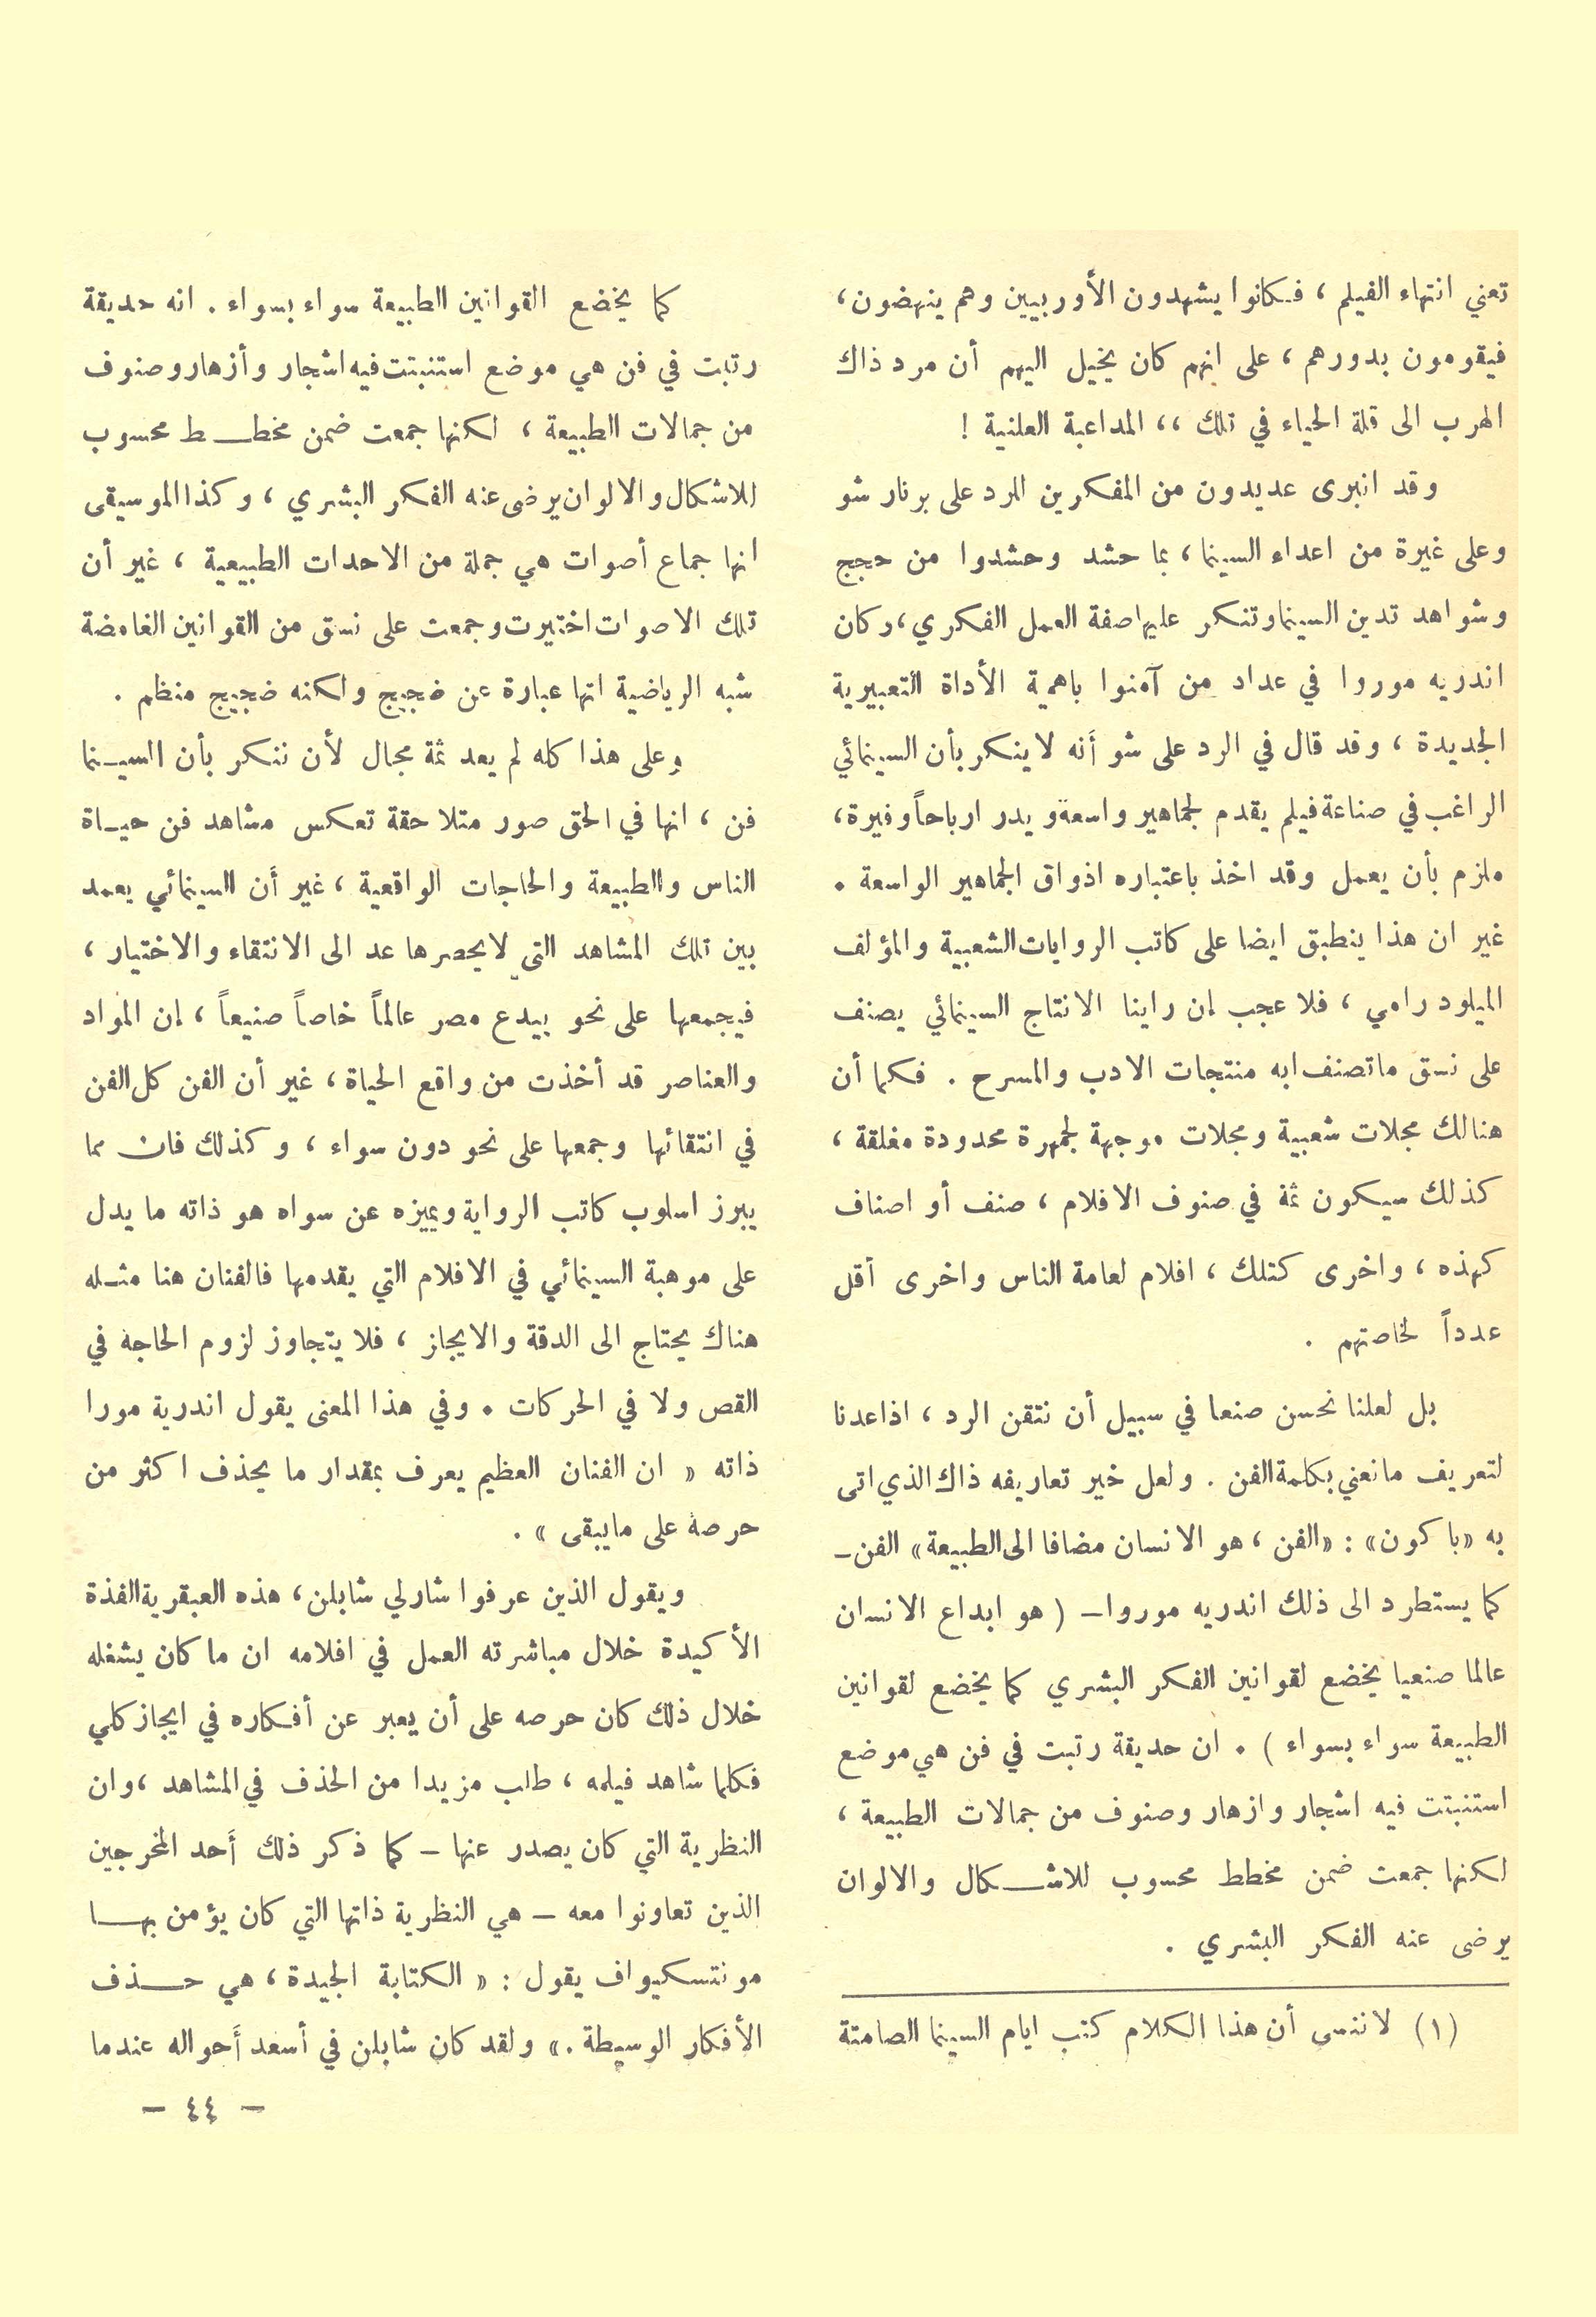 تعني انتهاء الفيلم ، فكانوا يشهدون الأوربيين وهم ينهضون ،
فيقومون بدورهم ، على انهم كان يخيل اليهم أن مرد ذاك
الهرب الى قلة الحياء في تلك ،، المداعبة العلنية !
وقد انبرى عديدون من المفكرين للرد على برنار شو
وعلى غيرة من اعداء السينما ، بما حشد وحشدوا من حجج
وشواهد تدين السينما وتنكر عليها صفة العمل الفكري ، وكان
اندريه موروا في عداد من آمنوا باهمية الأداة التعبيرية
الجديدة ، وقد قال في الرد على شو أنه لا ينكر بأن السينمائي
الراغب في صناعة فيلم يقدم لجماهير واسعة ويدر ارباحاً وفيرة ،
ملزم بأن يعمل وقد اخذ باعتباره اذواق الجماهير الواسعة .
غير ان هذا ينطبق ايضا على كاتب الروايات الشعبية والمؤلف
الميلودرامي ، فلا عجب إن راينا الانتاج السينمائي يصنف
على نسق ما تصنف ابه منتجات الادب والمسرح . فكما أن
هنالك مجلات شعبية ومجلات موجهة لجمهرة محدودة مغلقة ،
كذلك سيكون ثمة في صنوف الافلام ، صنف أو اصناف
كهذه ، واخرى كتلك ، افلام لعامة الناس واخرى أقل
عدداً لخاصتهم .
بل لعلنا نحسن صنعا في سبيل أن نتقن الرد ، اذا عدنا
لتعريف ما نعني بكلمة الفن . ولعل خير تعاريفه ذاك الذي اتى
به «باكون» : «الفن ، هو الانسان مضافا الى الطبيعة» الفن –
كما يستطرد الى ذلك اندريه موروا – ( هو ابداع الانسان
عالما صنعيا يخضع لقوانين الفكر البشري كما يخضع لقوانين
الطبيعة سواء بسواء ) . ان حديقة رتبت في فن هي موضع
استنبتت فيه اشجار وازهار وصنوف من جمالات الطبيعة ،
لكنها جمعت ضمن مخطط محسوب للاشكال والالوان
يرضى عنه الفكر البشري .
(١) لا ننسى أن هذا الكلام كتب ايام السينما الصامتة
كما يخضع القوانين الطبيعة سواء بسواء . انه حديقة
رتبت في فن هي موضع استنبتت فيه اشجار وأزهار وصنوف
من جمالات الطبيعة ، لكنها جمعت ضمن مخطط محسوب
للاشكال والالوان يرضى عنه الفكر البشري ، وكذا الموسيقى
انها جماع أصوات هي جملة من الاحدات الطبيعية ، غير أن
تلك الاصوات اختيرت وجمعت على نسق من القوانين الغامضة
شبه الرياضية انها عبارة عن ضجيج ولكنه ضجيج منظم .
وعلى هذا كله لم يعد ثمة مجال لأن ننكر بأن السينما
فن ، انها في الحق صور متلاحقة تعكس مشاهد فن حياة
الناس والطبيعة والحاجات الواقعية ، غير أن السينمائي يعمد
بين تلك المشاهد التي لا يحصرها عد الى الانتقاء والاختيار ،
فيجمعها على نحو يبدع مصر عالماً خاصاً صنيعاً ، إن المواد
والعناصر قد أخذت من واقع الحياة ، غير أن الفن كل الفن
في انتقائها وجمعها على نحو دون سواء ، وكذلك فان مما
يبرز اسلوب كاتب الرواية ويميزه عن سواه هو ذاته ما يدل
على موهبة السينمائي في الافلام التي يقدمها فالفنان هنا مثله
هناك يحتاج الى الدقة والايجاز ، فلا يتجاوز لزوم الحاجة في
القص ولا في الحركات . وفي هذا المعنى يقول اندرية مورا
ذاته « ان الفنان العظيم يعرف بمقدار ما يحذف اكثر من
حرصة على ما يبقى » .
ويقول الذين عرفوا شارلي شابلن ، هذه العبقرية الفذة
الأكيدة خلال مباشرته العمل في افلامه ان ما كان يشغله
خلال ذلك كان حرصه على أن يعبر عن أفكاره في ايجاز كلي
فكلما شاهد فيلمه ، طلب مزيدا من الحذف في المشاهد ، وان
النظرية التي كان يصدر عنها – كما ذكر ذلك أحد المخرجين
الذين تعاونوا معه – هي النظرية ذاتها التي كان يؤمن بها
مونتسكيواف يقول : « الكتابة الجيدة ، هي حذف
الأفكار الوسيطة . » ولقد كان شابلن في أسعد أحواله عندما
– ٤٤ –